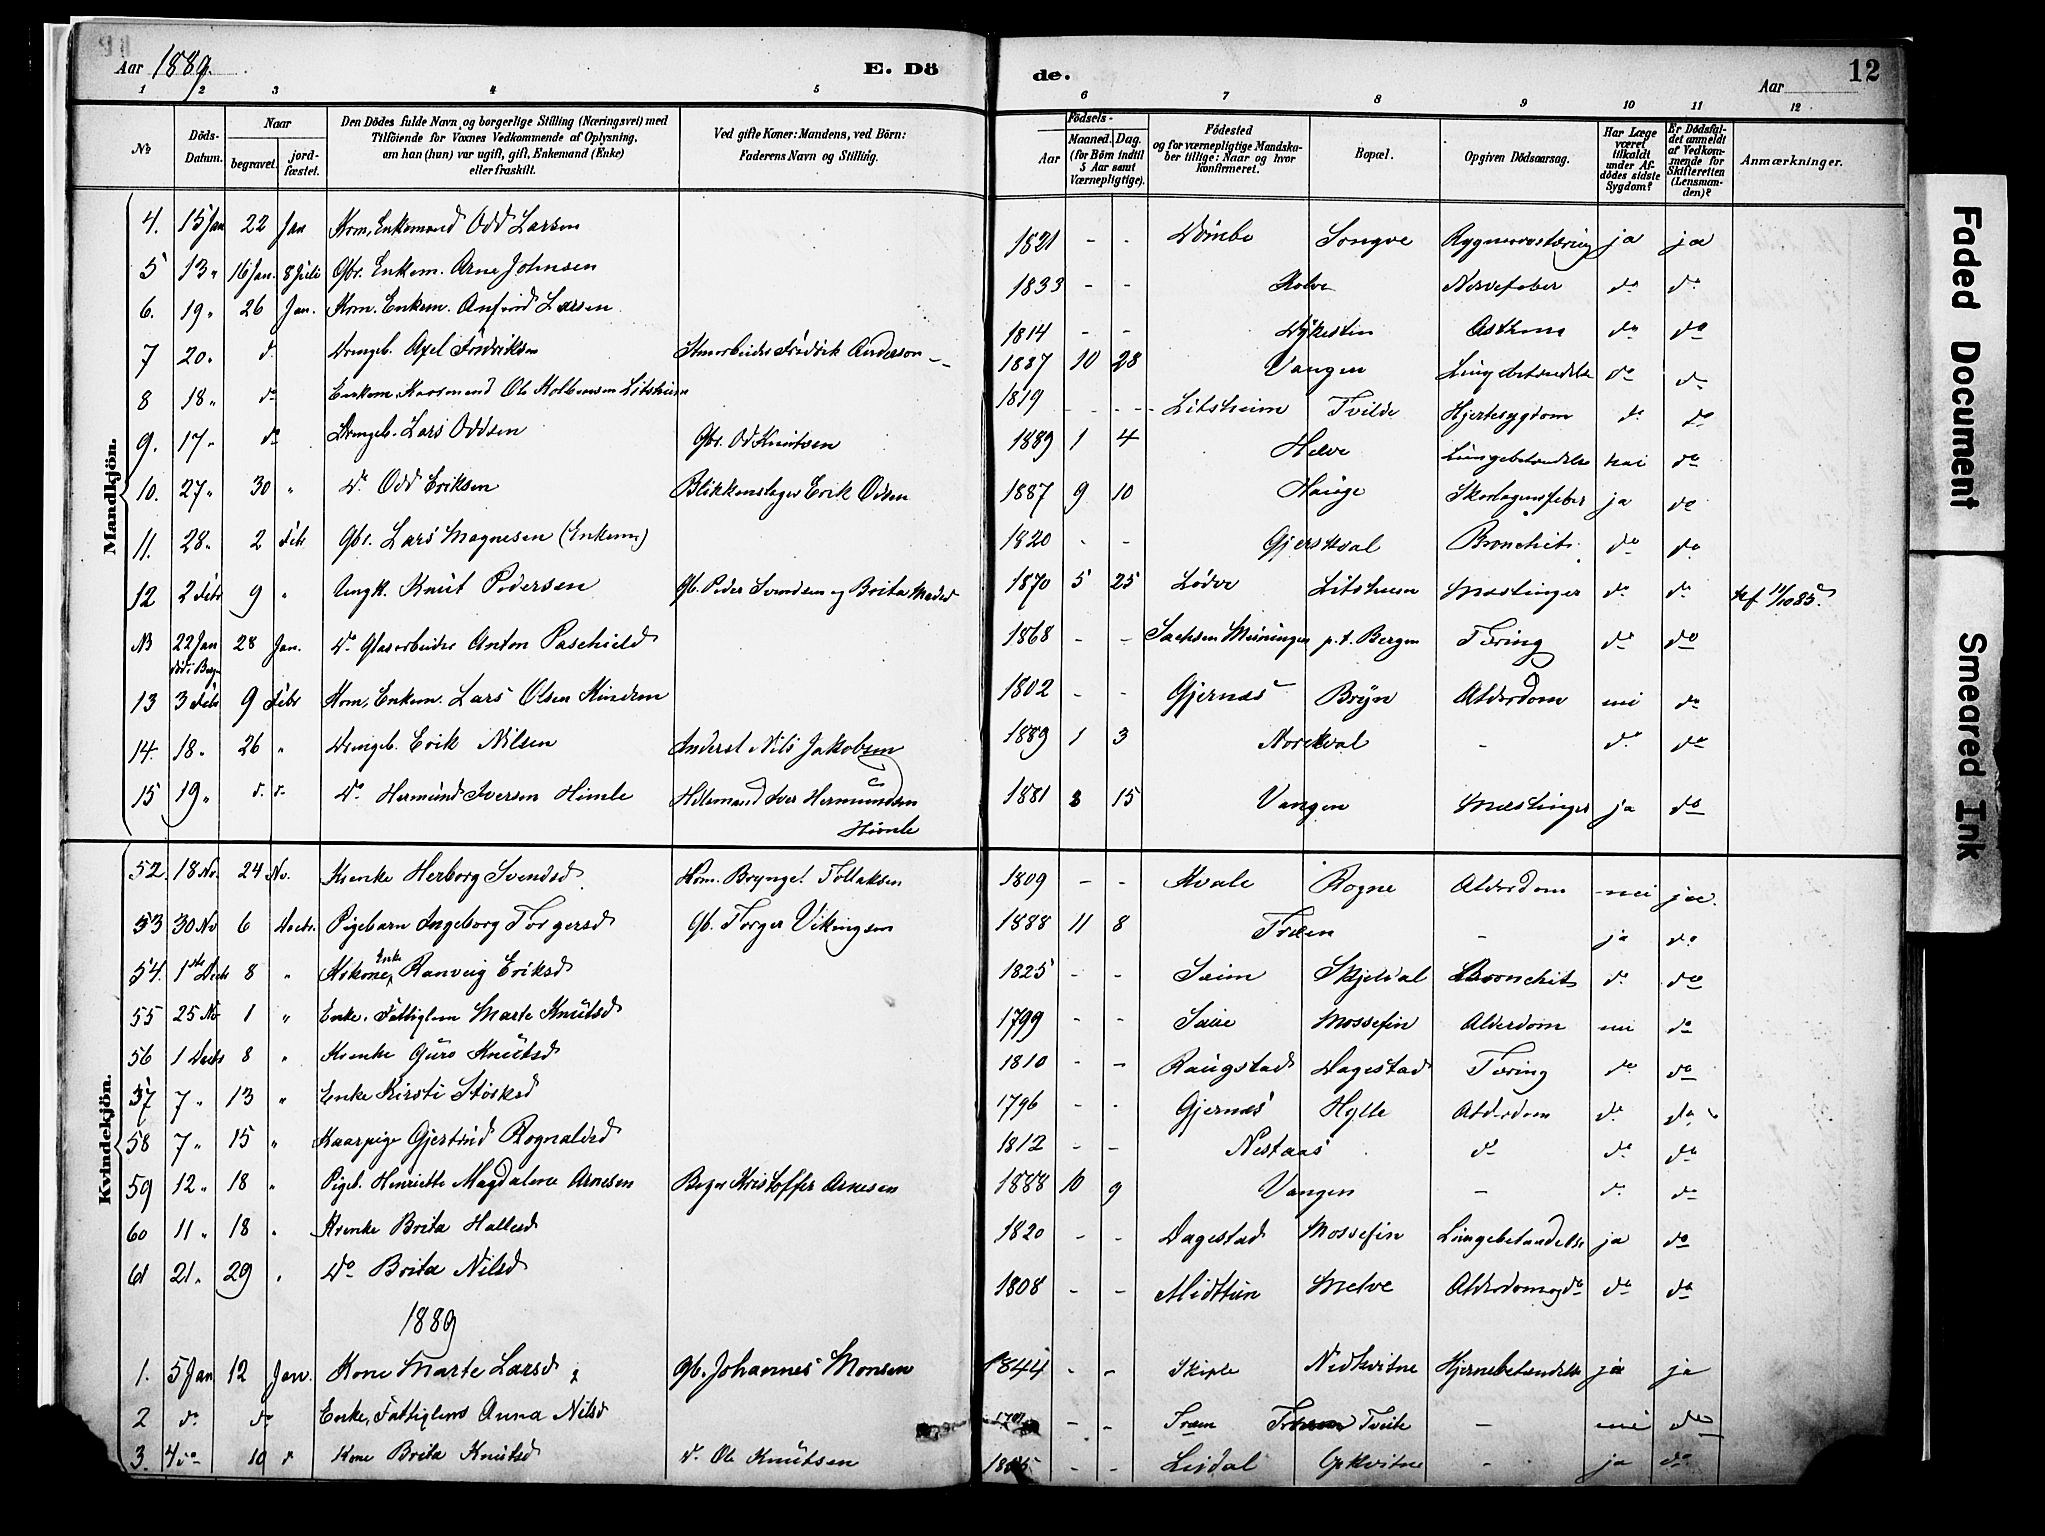 Aar 1889. E. Döde. Aar 12
1 2 3 4 5 6 7 8 9 10 11 12
No Döds-Datum. Naar begravet. jordfæstet. Den Dödes fulde Navn og borgerlige Stilling (Næringsvei) med Tilföiende for Voxnes Vedkommende af Oplysning, om han (hun) var ugift, gift, Enkemand (Enke) eller fraskilt. Ved gifte Koner: Mandens, ved Börn: Faderens Navn og Stilling. Födsels- Aar Maaned. Dag. (for Börn indtil 5 Aar samt Værnepligtige). Födested og for værnepligtige Mandskaber tillige: Naar og hvor konfirmeret. Bopæl. Opgiven Dödsaarsag. Har Læge været tilkaldt under Afdödes sidste Sygdom? Er Dödsfaldet anmeldt af Vedkommende for Skifteretten (Lensmanden)? Anmærkninger.
Mandkjön.
4. 15 Jan 22 Jan Kom. Enkemand Odd Larsen 1821 - - Dömbe Songve Rygmarvstæring ja ja
5 13 " 16 Jan. 8 Juli Gbr. Enkem. Arne Johnsen 1833 - - Rolve Nervefeber do do
6. 19 " 26 Jan. Kom. Enkem. Anfind Larsen 1814 - - Dykesten Asthma do do
7 20 " d. Drengeb. Axel Fredriksen Stenarbeider Fredrik Anderson 1887 10 28 Vangen Lungebetændelse do do
8 18 " do Enkem. Kaarmand Ole Kolbensen Litsheim 1819 - - Litsheim Tvilde Hjertesygdom do do
9. 17 " do Drengeb. Lars Oddsen Gbr. Od Knutsen 1889 1 4 Helve Lungebetændelse nei do
10. 27 " 30 " Do Odd Eriksen Blikkenslager Erik Odsen 1887 9 10 Hauge Skarlagensfeber ja do
11. 28 " 2 Febr Gbr. Lars Magnesen (Enkem) 1820 - - Gjerskval Bronchit do do
12 2 Febr 9 " Ungk. Knut Pedersen Gb. Peder Svendsen og Brita Madsd 1870 5 25 Lödve Litsheim Mæslinger do do kf 11/10 85.
NB 22 Jan död i Bergen 28 Jan. Do Glasarbeider Anton Paschield 1868 - - Sachsen Meiningen p.t. Bergen Tæring do do
13 3 Febr 9 Febr Kom. Enkem. Lars Olsen Kindren 1802 - - Gjernes Bryn Alderdom nei do
14. 18 " 26 " Drengeb. Erik Nilsen Anderst Nils Jakobsen 1889 1 3 Norekval - do do
15 19 " d. d. Do Hermund Iversen Himle Handelsmand Iver Hermundsen Himle 1881 8 15 Vangen Mæslinger ja do
Kvindekjön.
52. 18 Nov. 24 Nov. Kvenke Herborg Svendsd Kom. Brynget Tollaksen 1809 - - Kvale Rogne Alderdom nei ja.
53 30 Nov 6 Decbr. Pigebarn Ingeborg Torgersd Gb. Torger Vikingson 1888 11 8 Træen - ja do
54. 1ste Decbr 8 " Kskone, Enke Ranveig Eriksd 1825 - - Seim Skjelval Bronchit do do
55 25 Nov 1 " Enke. Fattiglem Marte Knutsd 1799 - - Saue Mossefin Alderdom nei do
56 1 Decbr 8 " Kvenke Guro Knutsd 1810 - - Raugstad Dagestad Tæring do do
57 7 " 13 " Enke Kirsti Störksd 1796 - - Gjernes Hylle Alderdom do do
58 7 " 15 " Kaarpige Gjertrud Rognaldsd 1812 - - Nestaas do do do
59 12 " 18 " Pigeb. Henriette Magdalene Arnesen Bager Kristoffer Arnesen 1888 10 9 Vangen - do do
60 11 " 18 " Kvenke Brita Hallesd 1820 - - Dagestad Mossefin Lungebetændelse ja do
61 21 " 29 " Do Brita Nilsd 1808 - - Midttun Melve Alderdom og do do do
1889
1. 5 Jan 12 Jan. Kone Marte Larsd Gb. Johannes Monsen 1844 - - Skiple Nedkvitne Hjernebetændelse ja ja
2 do do Enke, Fattiglem Anna Nilsd - - Træn Tveite - nei do
3. 4 do 10 d Kone Brita Knutsd d. Ole Knutsen - - Lirdal Opkvitne - ja do
Faded Document Smeared Ink